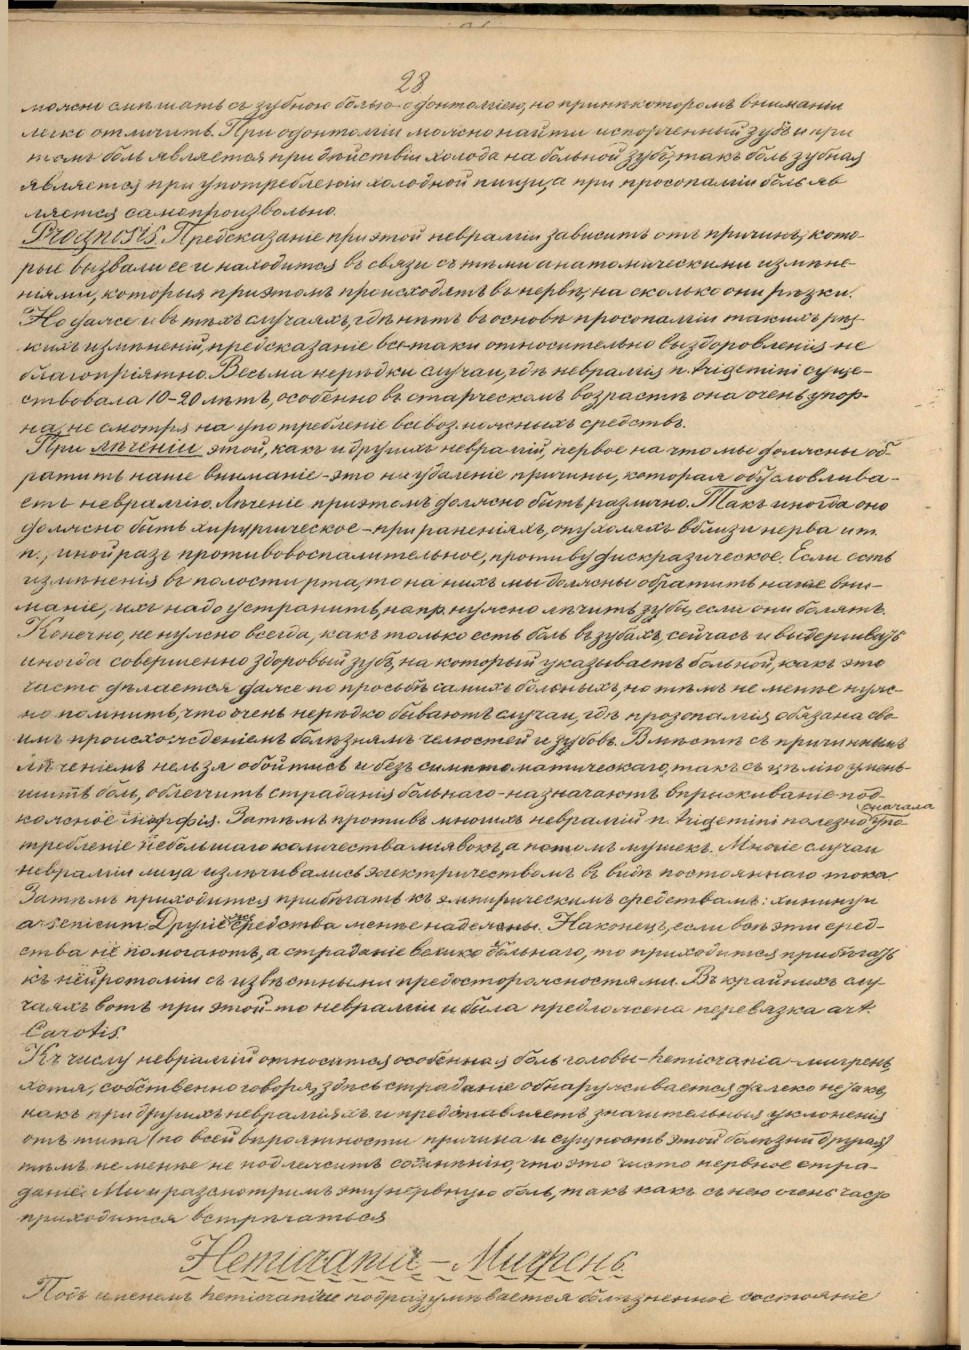 28
можно смѣшать съ зубною болью-одонталгіею, но при нѣкоторомъ вниманіи
легко отличить. При одонталгіи можно найти испорченный зубъ и при
томъ боль является при дѣйствіи холода на больной зубъ, такъ боль зубная
является при употребленіи холодной пищи, а при просопалгіи боль яв
ляется самопроизвольно.
Prognosis. Предсказаніе при этой невралгіи зависитъ отъ причинъ, кото-
рые вызвали ее и находится въ связи съ тѣми анатомическими измѣне-
ніями, которыя при этомъ происходятъ въ нервѣ, на сколько они рѣзки.
Но даже и въ тѣхъ случаяхъ, гдѣ нѣтъ въ основѣ просопалгіи такихъ рѣз-
кихъ измѣненій, предсказаніе все-таки относительно выздоровленія не
благопріятно. Весьма нерѣдки случаи, гдѣ невралгія n. trigemini суще-
ствовала 10-20 лѣтъ, особенно въ старческомъ возрастѣ она очень упор-
на, не смотря на употребленіе всевозможныхъ средствъ.
При лѣченіи этой, какъ и другихъ невралгій, первое на что мы должны об-
ратить наше вниманіе - это на удаленіе причины, которая обусловлива-
етъ невралгію. Лѣченіе при этомъ должно быть различно. Такъ иногда оно
должно быть хирургическое - при раненіяхъ, опухоляхъ вблизи нерва и т.
п., иной разъ противовоспалительное, противудискразическое. Если есть
измѣненія въ полости рта, то на нихъ мы должны обратить наше вни-
маніе, ихъ надо устранить, напр. нужно лѣчить зубы, если они болятъ.
Конечно, не нужно всегда, какъ только есть боль въ зубахъ, сейчасъ и выдергивать
иногда совершенно здоровый зубъ, на который указываетъ больной, какъ это
часто дѣлается даже по просьбѣ самихъ больныхъ, но тѣмъ не менѣе нуж-
но помнить, что очень нерѣдко бываютъ случаи, гдѣ прозопалгія обязана сво
имъ происхожденіемъ болѣзнямъ челюстей и зубовъ. Вмѣстѣ съ причиннымъ
лѣченіемъ нельзя обойтись и безъ симптоматическаго, такъ съ цѣлію умень-
шить боль, облегчить страданія больнаго - назначаютъ впрыскиваніе под-
кожное морфія. Затѣмъ противъ многихъ невралгій n. trigemini полезно сначала упо
требленіе небольшаго количества піявокъ, а потомъ мушекъ. Многіе случаи
невралгіи лица излѣчивались электричествомъ въ видѣ постояннаго тока.
Затѣмъ приходится прибѣгать къ эмпирическимъ средствамъ: хинину и
arsenicum. Другіе же средства менѣе надежны. Наконецъ, если всѣ эти сред-
ства не помогаютъ, а страданіе велико больнаго, то приходится прибѣгать
къ нейротоміи съ извѣстными предосторожностями. Въ крайнихъ слу-
чаяхъ вотъ при этой-то невралгіи и была предложена перевязка art.
Carotis.
Къ числу невралгій относится особенная боль головы - hemicrania - мигрень,
хотя, собственно говоря, здѣсь страданіе обнаруживается далеко не такъ,
какъ при другихъ невралгіяхъ и представляетъ значительныя уклоненія
отъ типа (по всей вѣроятности причина и сущность этой болѣзни другая)
тѣмъ не менѣе не подлежитъ сомнѣнію, что это чисто нервное стра-
даніе. Мы и разсмотримъ эту нервную боль, такъ какъ съ нею очень часто
приходится встрѣчаться
Hemicrania - Мигрень.
Подъ именемъ hemicraniae подразумѣвается болѣзненное состояніе